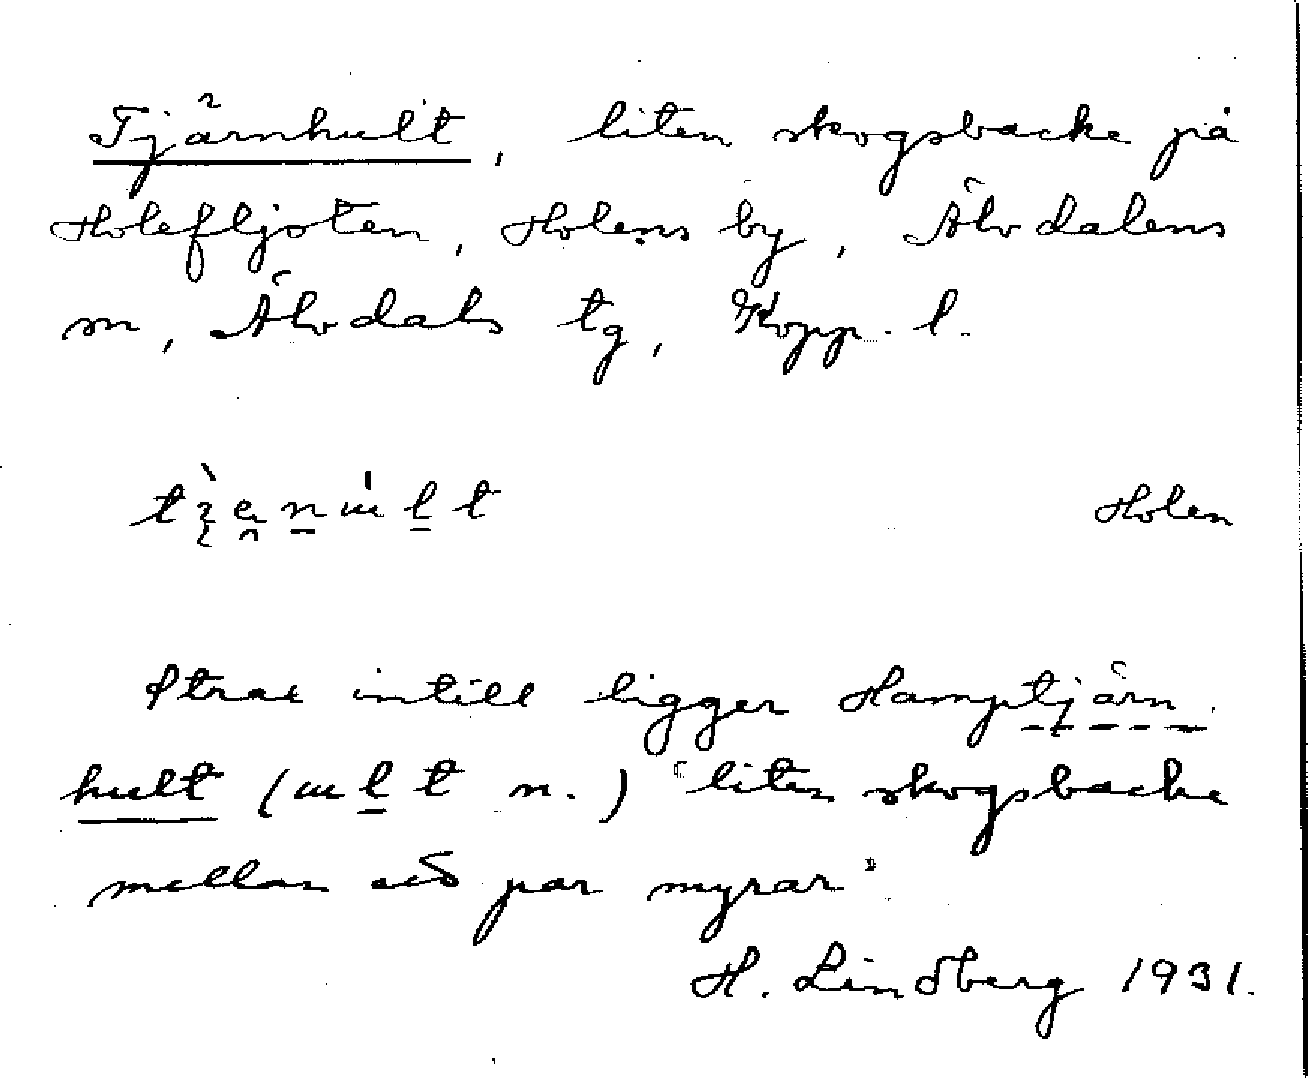 Tjärnhult, liten skogsbacke på
Holefljoten, Holens by, Älvdalens
m, Älvdals tg, Kopp. l.
Holen
Strax intill ligger Hamptjärn
hult (ult n.) "liten skogsbacke
mellan ett par myrar"
H. Lindberg 1931.